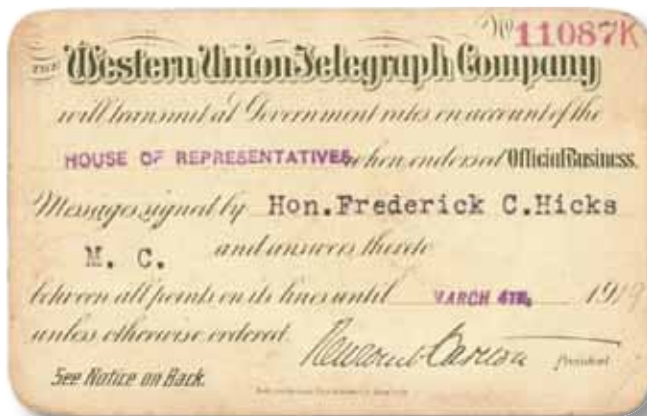 No 11087K
THE Western Union Telegraph Company
will transmit at Government rates on account of the
HOUSE OF REPRESENTATIVES when endorsed Official Business.
Messages signed by Hon. Frederick C. Hicks
M. C. and answers thereto
between all points on its lines until MARCH 4TH, 1919
unless otherwise ordered.
Newcomb Carlton President
See Notice on Back.